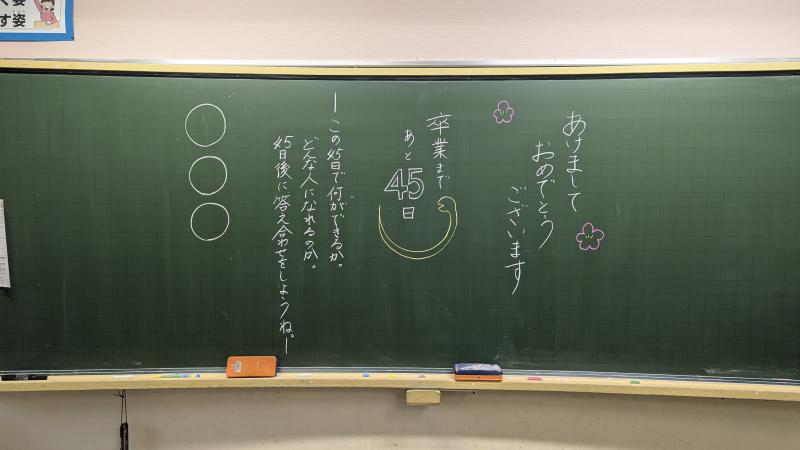 あけまして
おめでとう
ございます
卒業まで
あと
45
日
ーこの45日で何ができるか。
どんな人になれるのか。
45日後に答え合わせをしようね。ー
す姿